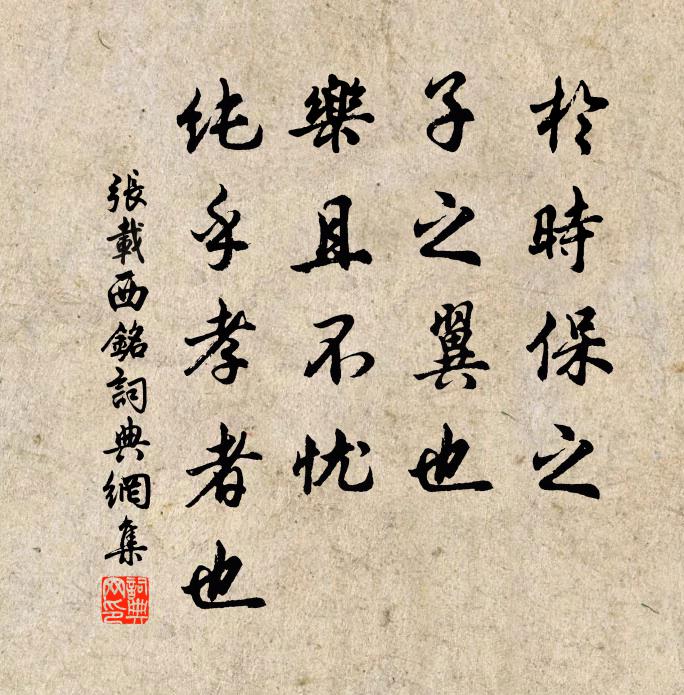 於時保之
子之翼也
樂且不忧
纯乎孝者也
張載西銘詞典網集
詞典网印